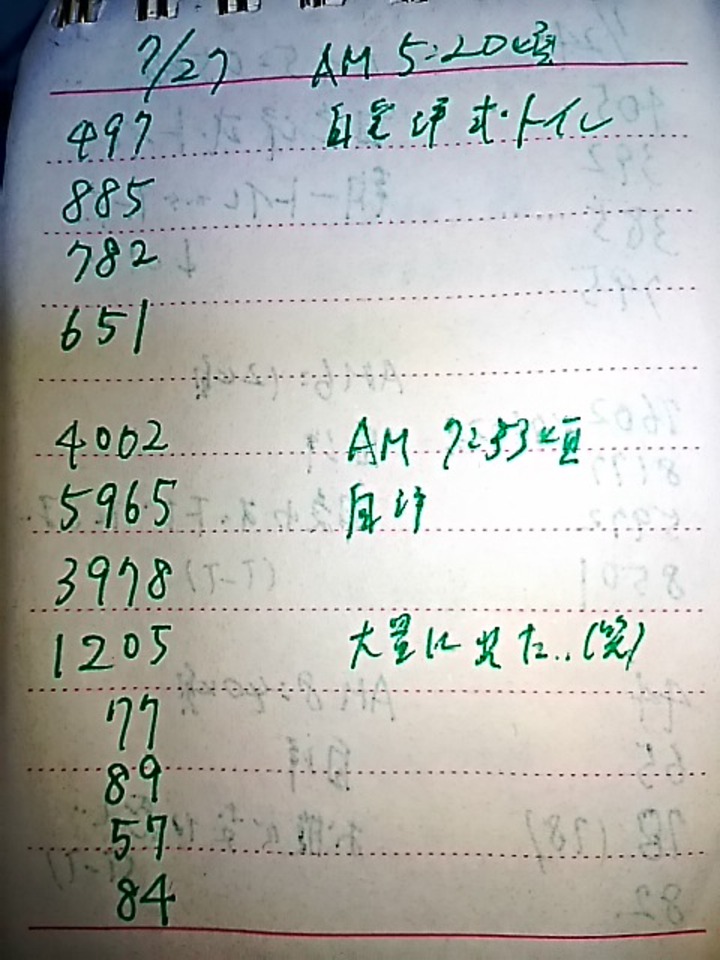 7/27 AM 5:20頃
497 自宅 洋式・トイレ
885
782
651
4002 AM 7:33頃
5965 自
3978
1205 大量に出た..(笑)
77
89
57
84